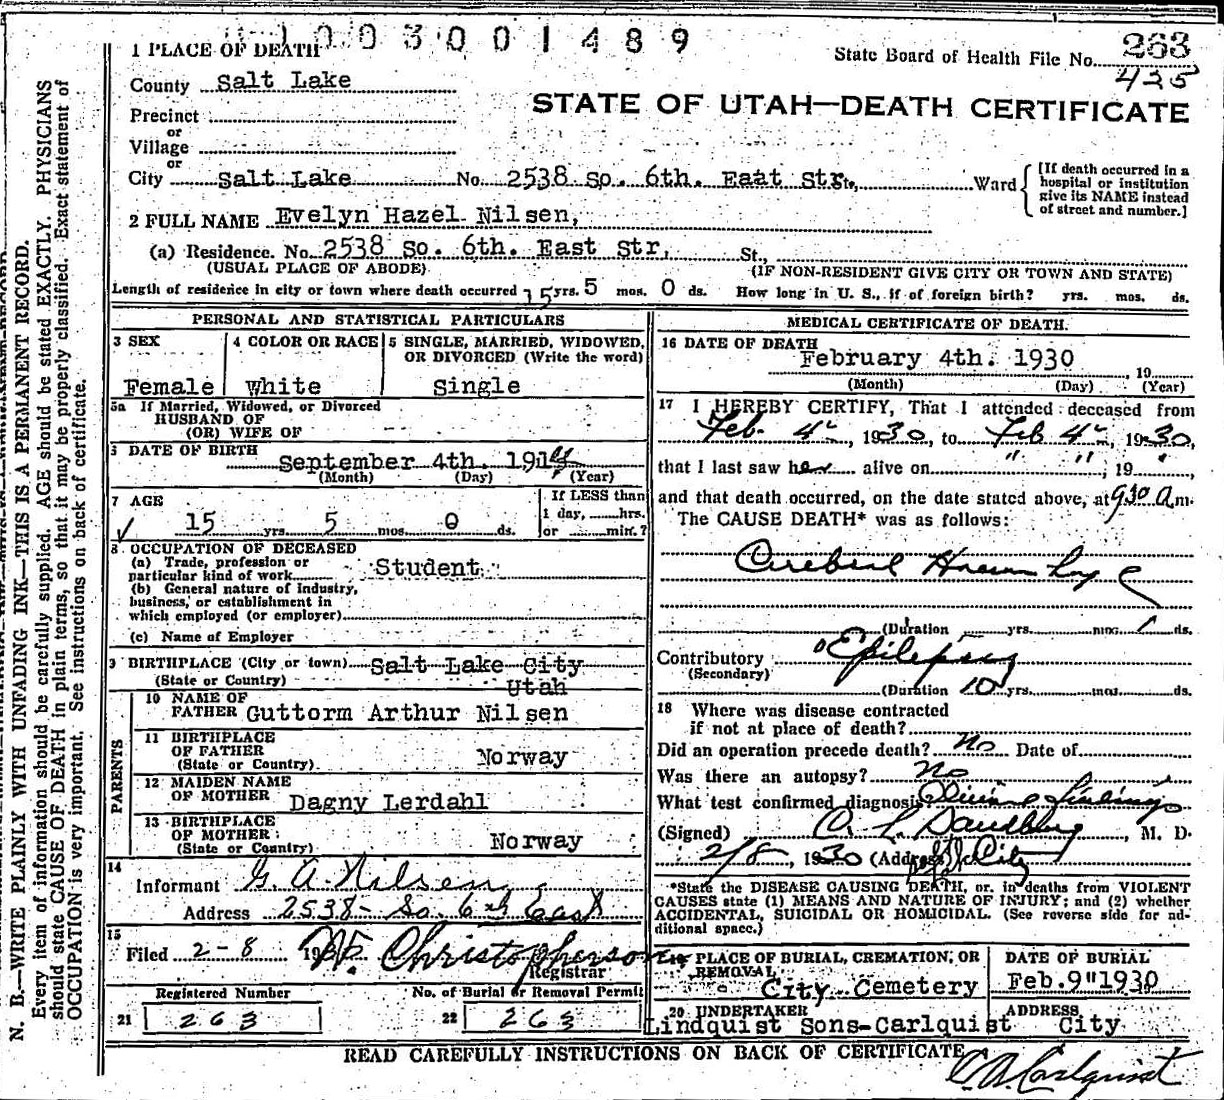 1003001489
State Board of Health File No. 263
425
1 PLACE OF DEATH
County Salt Lake
STATE OF UTAH—DEATH CERTIFICATE
Precinct
or
Village
or
City Salt Lake No. 2538 So. 6th. East Str., Ward
[If death occurred in a hospital or institution give its NAME instead of street and number.]
2 FULL NAME Evelyn Hazel Nilsen,
(a) Residence. No. 2538 So. 6th. East Str, St.,
(USUAL PLACE OF ABODE) (IF NON-RESIDENT GIVE CITY OR TOWN AND STATE)
Length of residence in city or town where death occurred 15 yrs. 5 mos. 0 ds. How long in U. S., if of foreign birth? yrs. mos. ds.
PERSONAL AND STATISTICAL PARTICULARS
3 SEX
Female
4 COLOR OR RACE
White
5 SINGLE, MARRIED, WIDOWED, OR DIVORCED (Write the word)
Single
5a If Married, Widowed, or Divorced
HUSBAND OF
(OR) WIFE OF
6 DATE OF BIRTH September 4th. 1914
(Month) (Day) (Year)
7 AGE
15 yrs. 5 mos. 0 ds.
If LESS than
1 day, hrs.
or min.?
8 OCCUPATION OF DECEASED
(a) Trade, profession or
particular kind of work Student
(b) General nature of industry,
business, or establishment in
which employed (or employer)
(c) Name of Employer
9 BIRTHPLACE (City or town) Salt Lake City
(State or Country) Utah
PARENTS
10 NAME OF
FATHER Guttorm Arthur Nilsen
11 BIRTHPLACE
OF FATHER
(State or Country) Norway
12 MAIDEN NAME
OF MOTHER Dagny Lerdahl
13 BIRTHPLACE
OF MOTHER
(State or Country) Norway
14
Informant G. A. Nilsen
Address 2538 So. 6th East
15
Filed 2-8 19 Christopherson
Registrar
Registered Number
21 263
No. of Burial or Removal Permit
22 263
MEDICAL CERTIFICATE OF DEATH.
16 DATE OF DEATH
February 4th. 1930, 19
(Month) (Day) (Year)
17 I HEREBY CERTIFY, That I attended deceased from
Feb. 4", 1930, to Feb 4", 1930,
that I last saw her alive on " ", 19 "
and that death occurred, on the date stated above, at 930 a m.
The CAUSE DEATH* was as follows:
Cerebral Hemorrhage
(Duration yrs. mos. 1 ds.
Contributory Epilepsy
(Secondary)
(Duration 10 yrs. mos. ds.
18 Where was disease contracted
if not at place of death?
Did an operation precede death? No Date of
Was there an autopsy? No
What test confirmed diagnosis Clinical findings
(Signed) O. L. Sandberg, M. D.
2/8, 1930 (Address) City
*State the DISEASE CAUSING DEATH, or, in deaths from VIOLENT
CAUSES state (1) MEANS AND NATURE OF INJURY; and (2) whether
ACCIDENTAL, SUICIDAL OR HOMICIDAL. (See reverse side for ad-
ditional space.)
19 PLACE OF BURIAL, CREMATION, OR
REMOVAL
City Cemetery
DATE OF BURIAL
Feb. 9" 1930
20 UNDERTAKER
Lindquist Sons-Carlquist
ADDRESS
City
READ CAREFULLY INSTRUCTIONS ON BACK OF CERTIFICATE
C A Carlquist
N. B.—WRITE PLAINLY WITH UNFADING INK—THIS IS A PERMANENT RECORD.
Every item of information should be carefully supplied. AGE should be stated EXACTLY. PHYSICIANS
should state CAUSE OF DEATH in plain terms, so that it may be properly classified. Exact statement of
OCCUPATION is very important. See instructions on back of certificate.